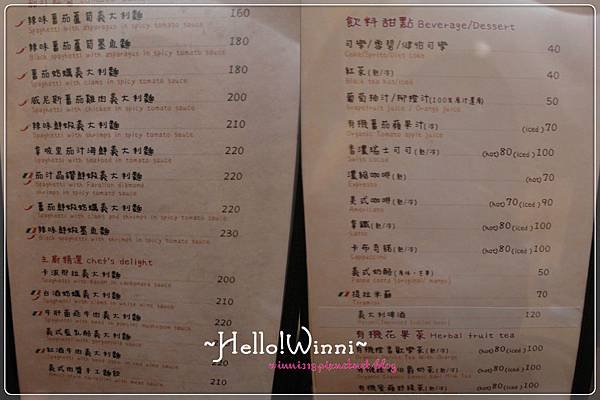 辣味蕃茄蘆筍義大利麵 160
Spaghetti with asparagus in spicy tomato sauce
辣味蕃茄蘆筍墨魚麵 180
Black spaghetti with asparagus in spicy tomato sauce
蕃茄蛤蠣義大利麵 180
Spaghetti with clams in spicy tomato sauce
威尼斯蕃茄雞肉義大利麵 200
Spaghetti with chicken in spicy tomato sauce
辣味鮮蝦義大利麵 210
Spaghetti with shrimps in spicy tomato sauce
拿坡里茄汁海鮮義大利麵 220
Spaghetti with seafood in tomato sauce
茄汁晶鑽鮮蝦義大利麵 220
Spaghetti with Farallon diamond
shrimps in spicy tomato sauce
蕃茄鮮蝦蛤蠣義大利麵 220
Spaghetti with clams and shrimps in spicy tomato sauce
辣味鮮蝦墨魚麵 230
Black spaghetti with shrimps in spicy tomato sauce
主廚精選 chef's delight
卡波那拉義大利麵 200
Spaghetti with bacon in carbonara sauce
白酒蛤蠣義大利麵 210
Spaghetti with clams in white wine sauce
牛肝菌菇牛肉義大利麵 220
義式藍乳酪義大利麵 220
紅酒牛肉義大利麵 220
義式肉醬手工麵餃 210
飲料甜點 Beverage/Dessert
可樂/雪碧/健怡可樂 40
Coke/Sprite/Diet coke
紅茶(熱/冷) 40
Black tea hot/iced
葡萄柚汁/柳橙汁(100%原汁還原) 50
Grapefruit juice / Orange juice
有機蕃茄蘋果汁(冷) (iced)70
Organic Tomato apple juice
香濃瑞士可可(熱/冷) (hot)80(iced)100
Swiss cocoa
濃縮咖啡(熱) (hot)70
Espresso
美式咖啡(熱/冷) (hot)70(iced)90
Americano
拿鐵(熱/冷) (hot)80(iced)100
Latte
卡布奇諾(熱/冷) (hot)80(iced)100
Cappuccino
義式奶酪 50
提拉米蘇 70
Tiramisu
義大利啤酒 120
有機花果茶 Herbal fruit tea
(hot)80(iced)100
(hot)80(iced)100
(hot)80(iced)100
~Hello!Winni~
winni319.pixnet.net/blog